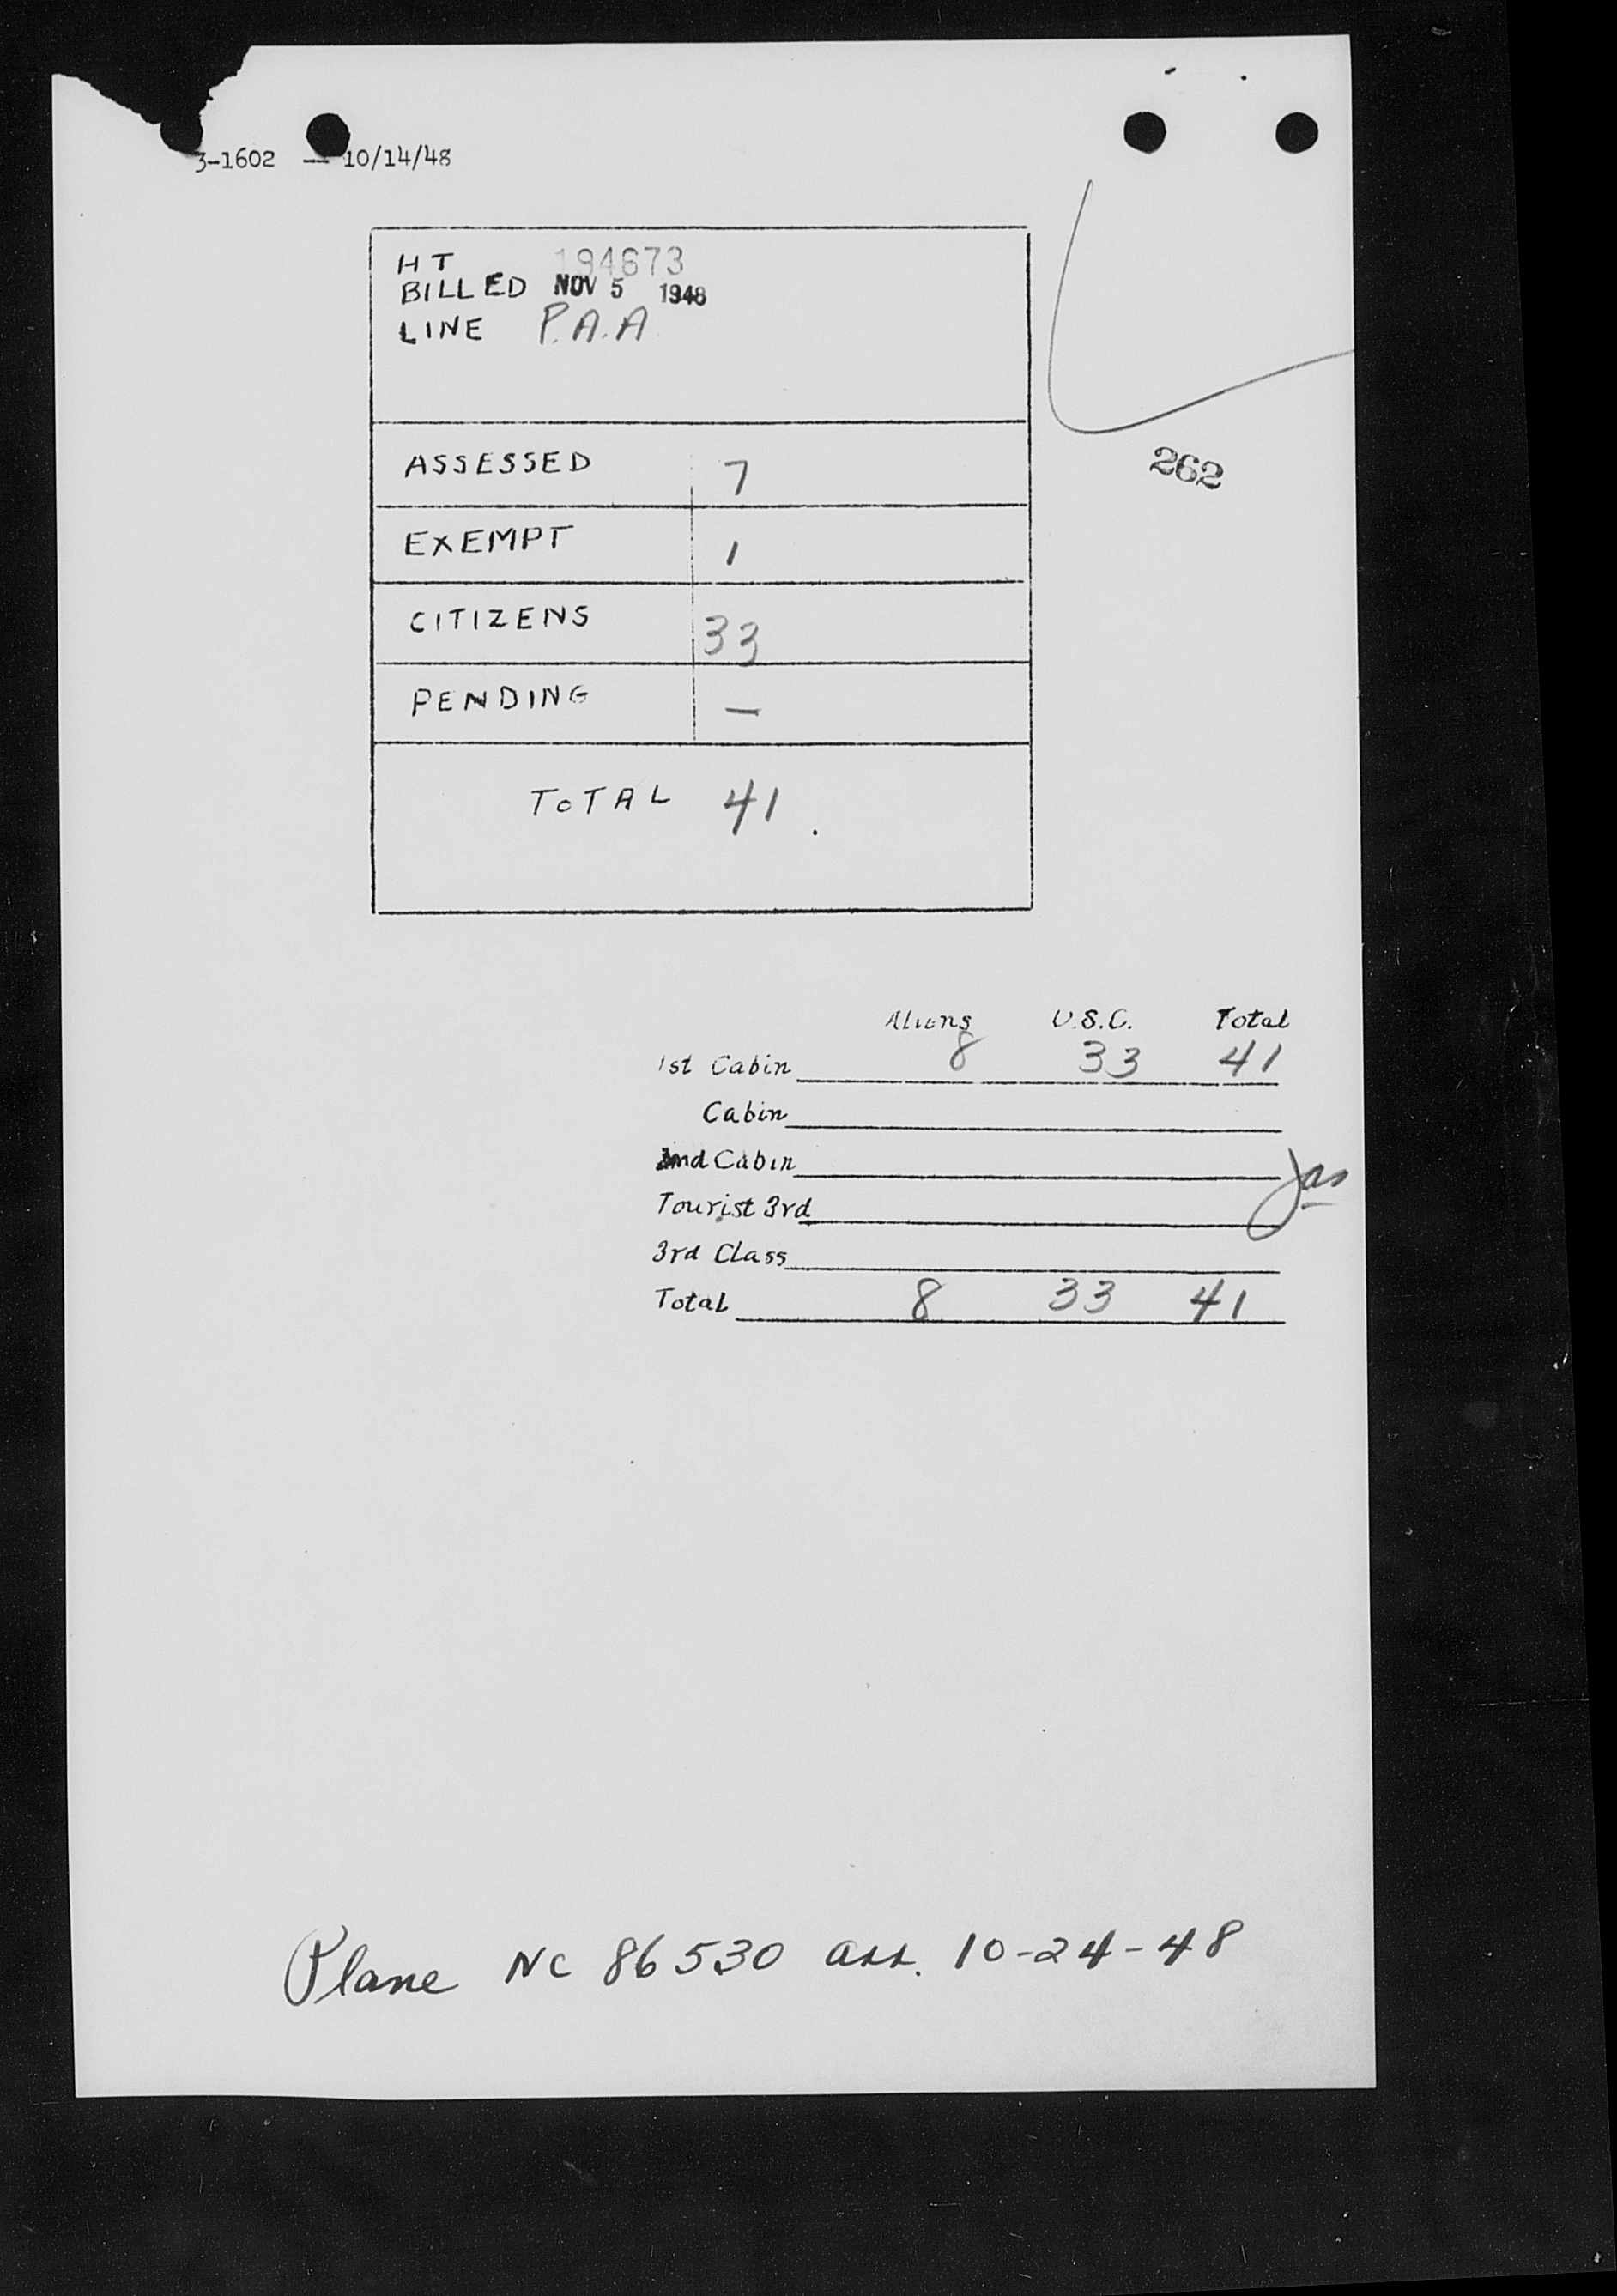 3-1602 — 10/14/48
HT 194673
BILLED NOV 5 1948
LINE P.A.A.
262
ASSESSED 7
EXEMPT 1
CITIZENS 33
PENDING —
TOTAL 41.
Aliens U.S.C. Total
1st Cabin 8 33 41
Cabin
2nd Cabin
Tourist 3rd
3rd Class
Total 8 33 41
Plane NC 86530 arr. 10-24-48